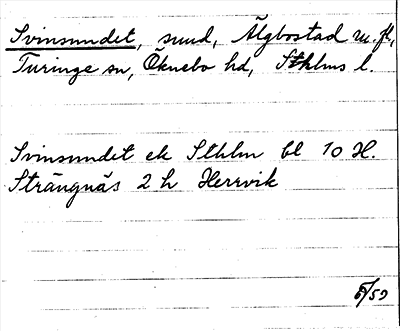 Svinsundet, sund, Älgbostad m. fl.,
Turinge sn, Öknebo hd, Sthlms l.
Svinsundet ek Sthlm bl 10 H.
Strängnäs 2 h Herrvik
/59